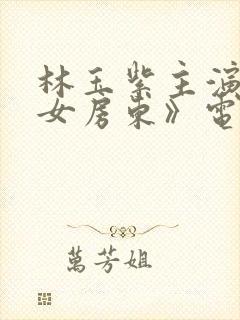 林玉紫主演
女房东》电
萬芳姐